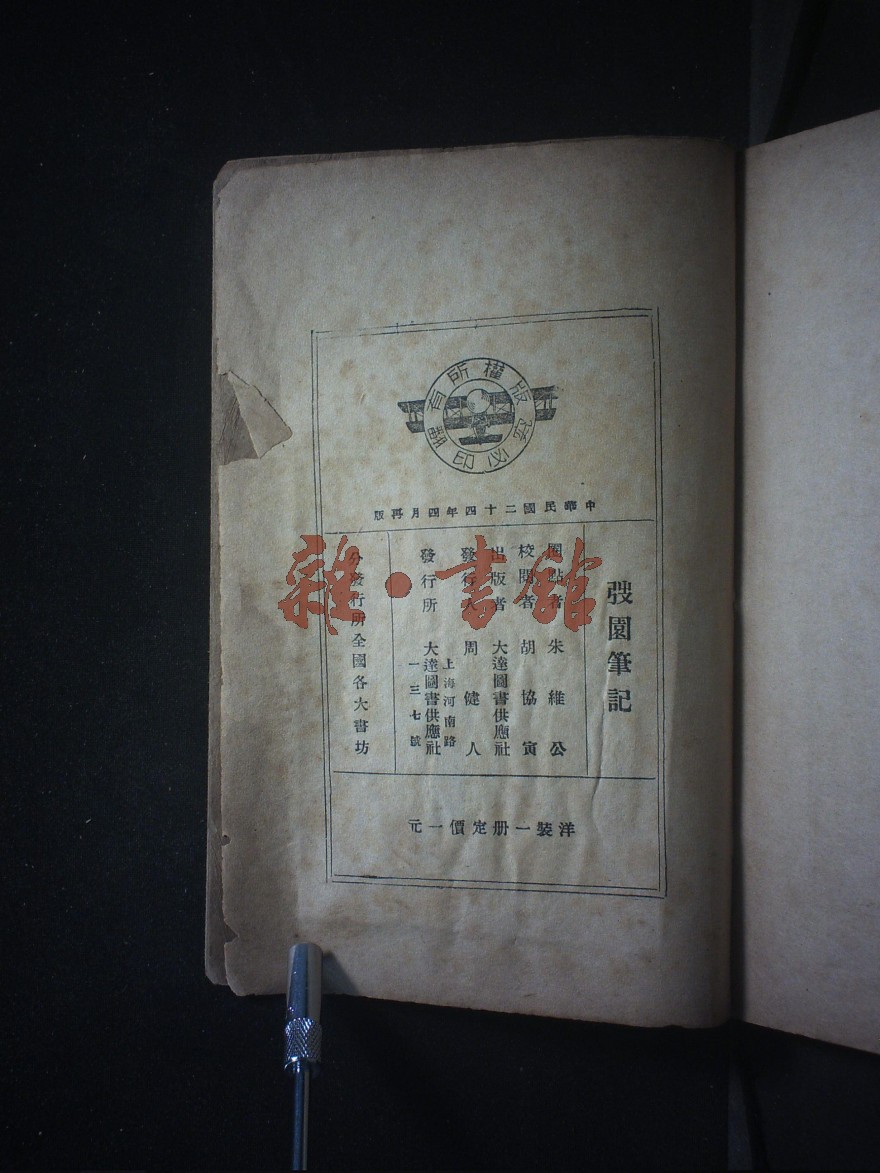 版權所有
翻印必究
中華民國二十四年四月再版
弢園筆記
圈點者 朱維公
校閱者 胡協寅
出版者 大達圖書供應社
發行人 周健人
上海河南路
發行所 大達圖書供應社
一三七號
分發行所全國各大書坊
洋裝一册定價一元
雜·書館